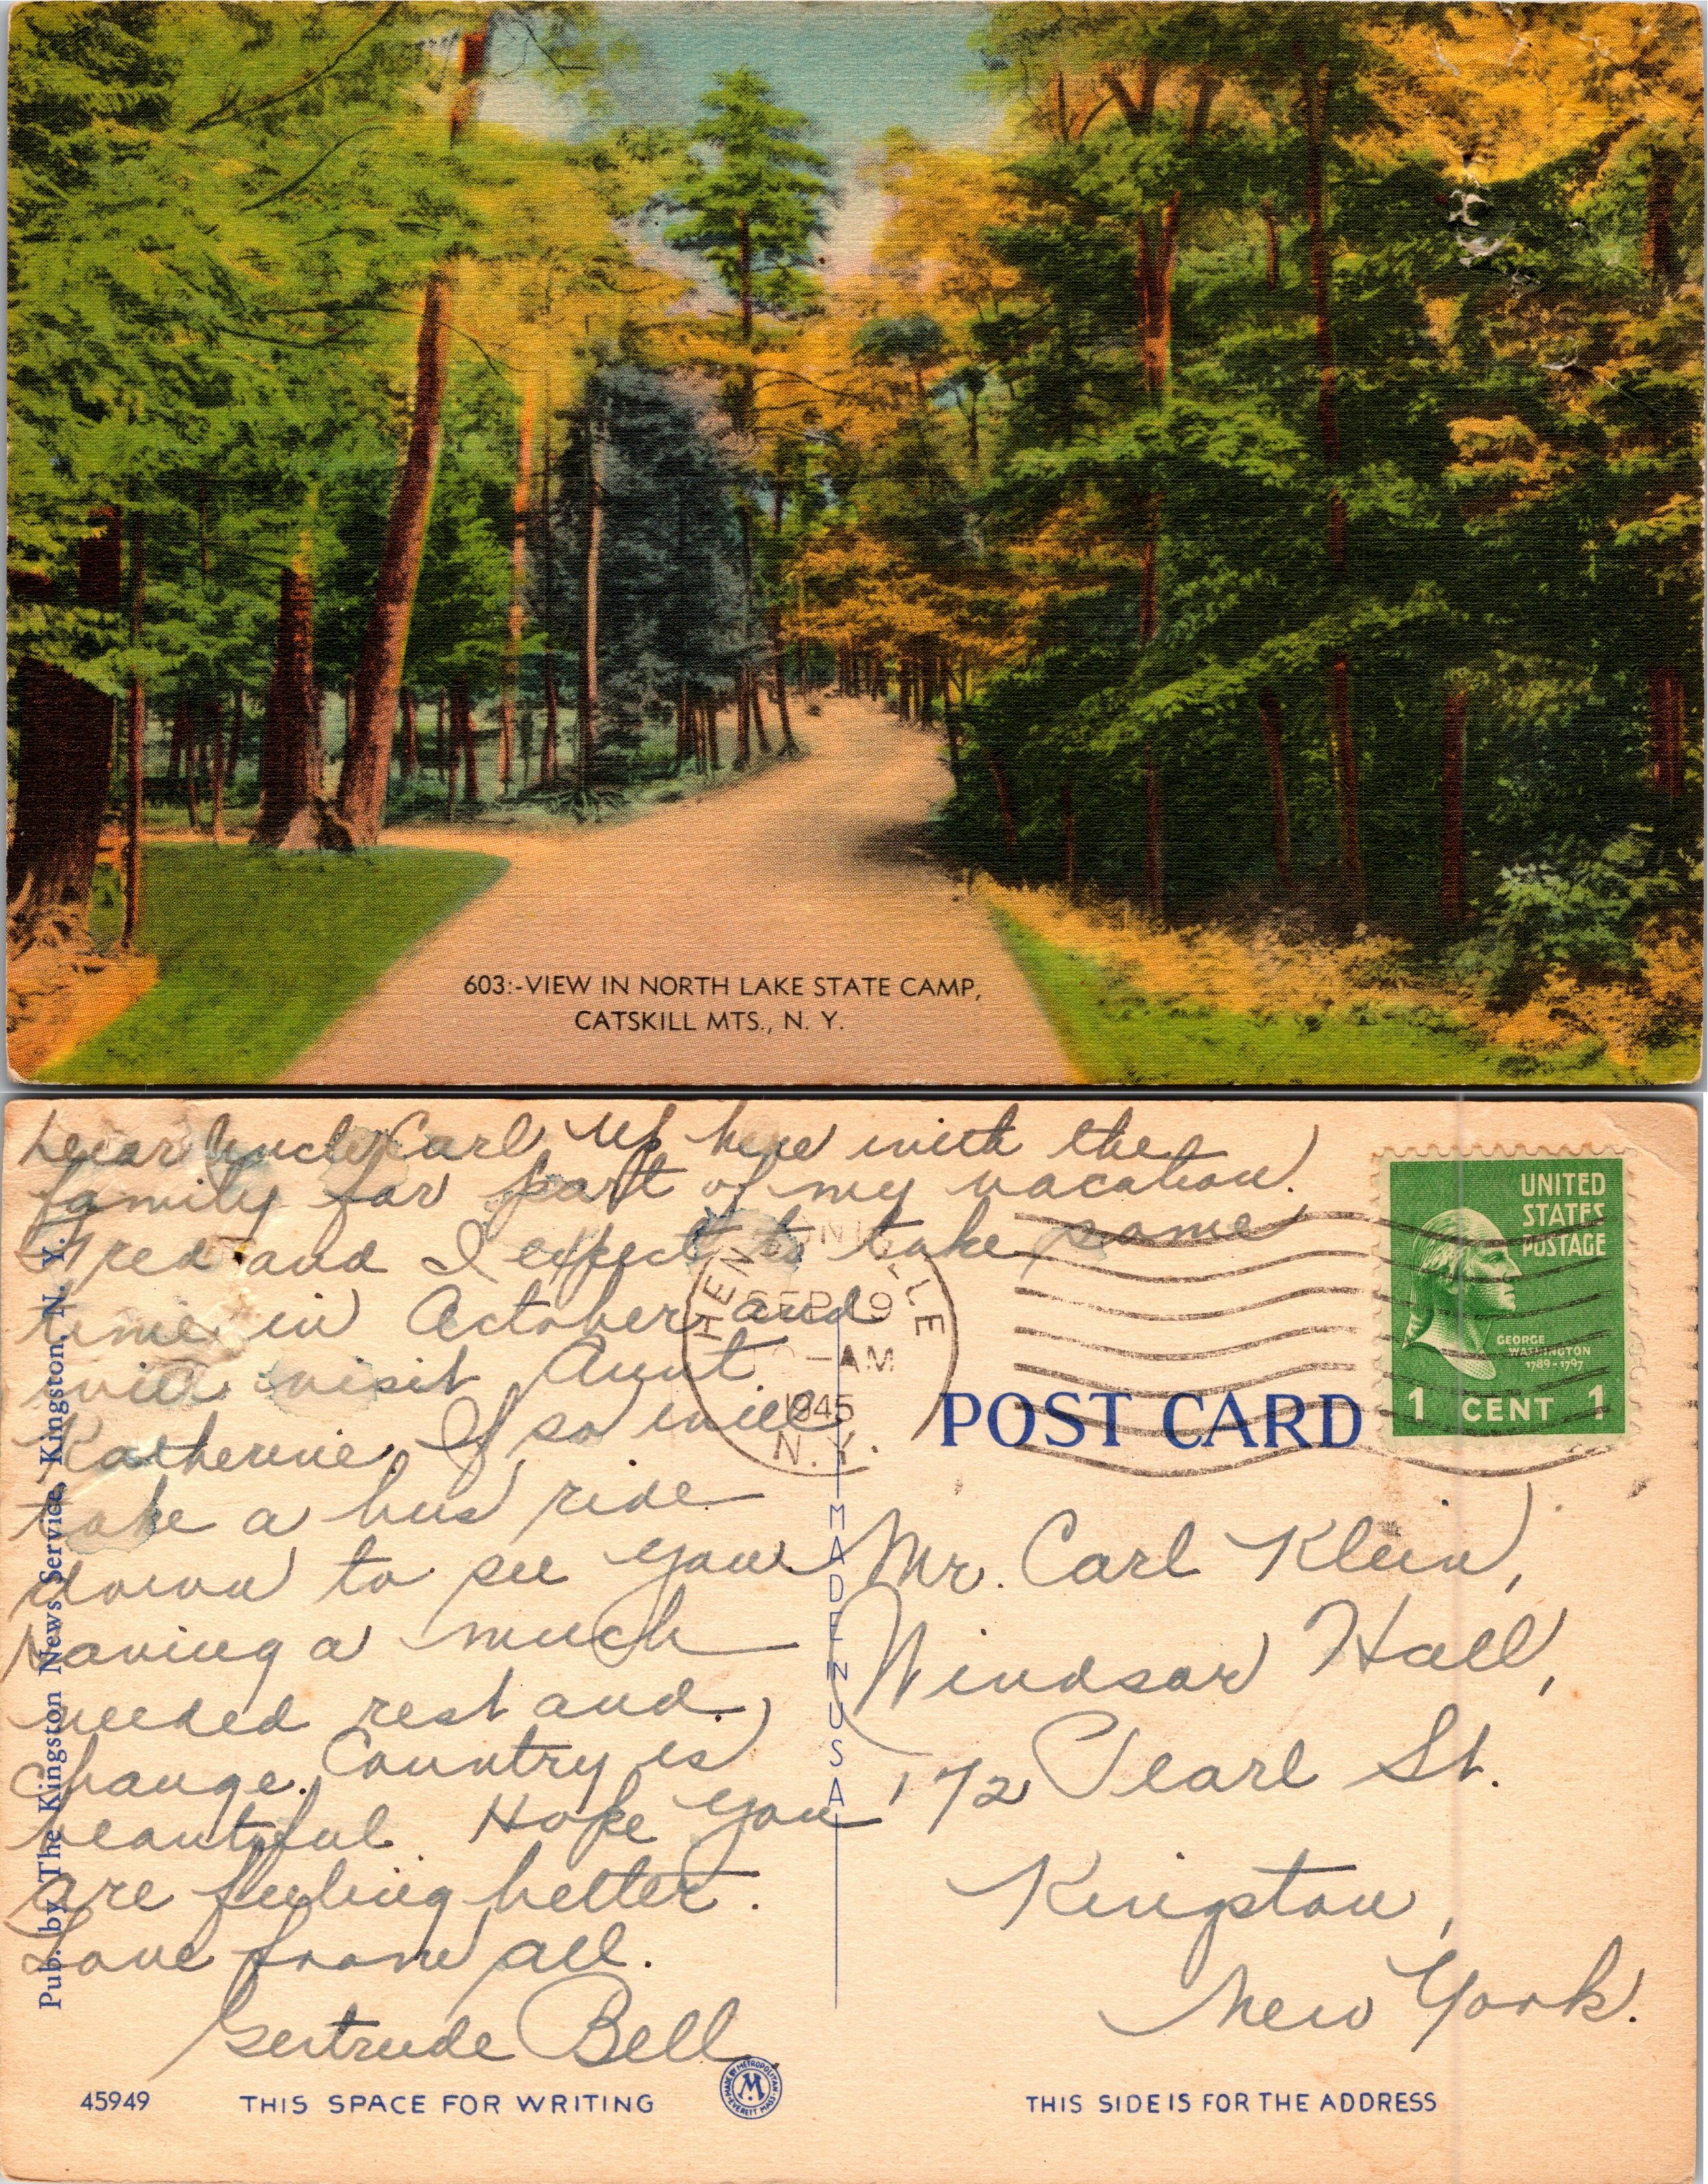 603:-VIEW IN NORTH LAKE STATE CAMP,
CATSKILL MTS., N. Y.
Dear Uncle Carl Up here with the
family for part of my vacation.
Fred and I expect to take some
time in October and
will visit Aunt
Katherine. If so will
take a bus ride
down to see you
Having a much
needed rest and
change. Country is
beautiful. Hope you
are feeling better.
Love from all.
Gertrude Bell.
Pub. by The Kingston News Service, Kingston, N. Y.
45949
THIS SPACE FOR WRITING
MADE BY METROPOLITAN
M
EVERETT MASS.
MADE IN U S A
SEP 19
-AM
1945
N.Y.
UNITED
STATES
POSTAGE
GEORGE
WASHINGTON
1789-1797
1 CENT 1
POST CARD
Mr. Carl Klein,
Windsor Hall,
172 Pearl St.
Kingston,
New York.
THIS SIDE IS FOR THE ADDRESS